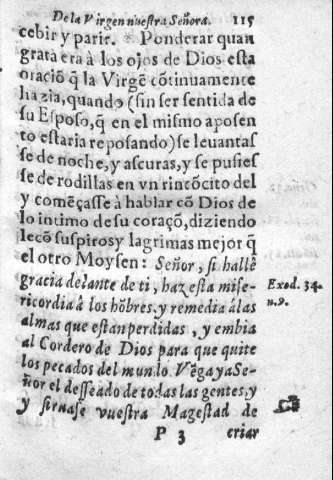 De la Virgen nuestra Señora. 115
cebir y parir. * Ponderar quan
grata era à los ojos de Dios esta
oraciõ q̃ la Virgẽ cõtinuamente
hazia, quando (sin ser sentida de
su Esposo, q̃ en el mismo aposen
to estaria reposando) se leuantas
se de noche, y ascuras, y se pusies
se de rodillas en vn rincõcito del
y comẽçasse à hablar cõ Dios de
lo intimo de su coraçõ, diziendo
le cõ suspiros y lagrimas mejor q̃
el otro Moysen: Señor, si hallè
gracia delante de ti, haz esta mise-
Exod. 34.
ricordia à los hõbres, y remedia á las
n. 9.
almas que estan perdidas, y embia
al Cordero de Dios para que quite
los pecados del mundo. Vẽga ya Se-
ñor el desseado de todas las gentes, y
y siruase vuestra Magestad de
P 3 criar